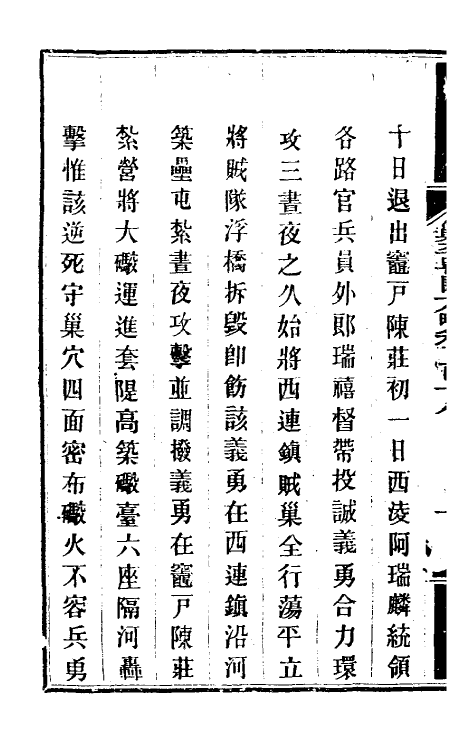 十日退出竈戸陳莊初一日西淩阿瑞麟統領
各路官兵員外郎瑞禧督帶投誠義勇合力環
攻三晝夜之久始將西連鎮賊巢全行蕩平立
將賊隊浮橋拆毀卽飭該義勇在西連鎮沿河
築壘屯紮晝夜攻擊並調撥義勇在竈戸陳莊
紮營將大礮運進套隄高築礮臺六座隔河轟
擊惟該逆死守巢穴四面密布礮火不容兵勇